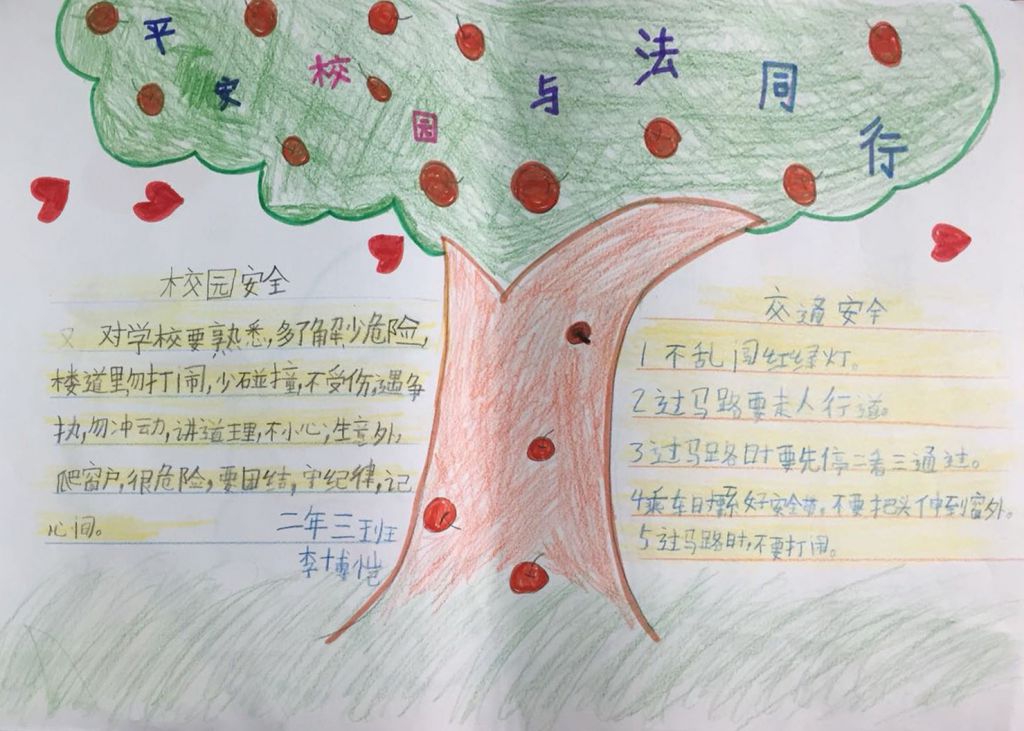 平安校园与法同行
校园安全
对学校要熟悉,多了解少危险,
楼道里勿打闹,少碰撞,不受伤,遇争
执,勿冲动,讲道理,不小心,生意外,
爬窗户,很危险,要团结,守纪律,记
心间。
二年三班
李博恺
交通安全
1 不乱闯红绿灯。
2 过马路要走人行道。
3 过马路时要先停二看三通过。
4 乘车时系好安全带,不要把头伸到窗外。
5 过马路时,不要打闹。